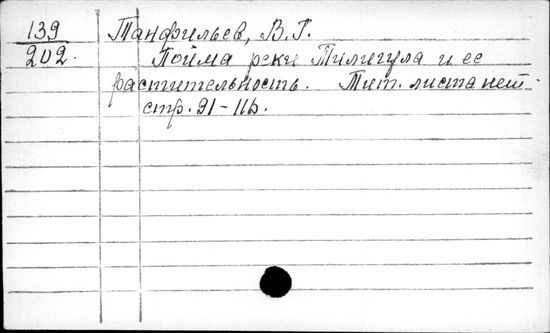 139
202.
Танфильев, В.Г.
Пойма реки Тилигула и ее
растительность. Тит. листа нет.
стр. 91-116.